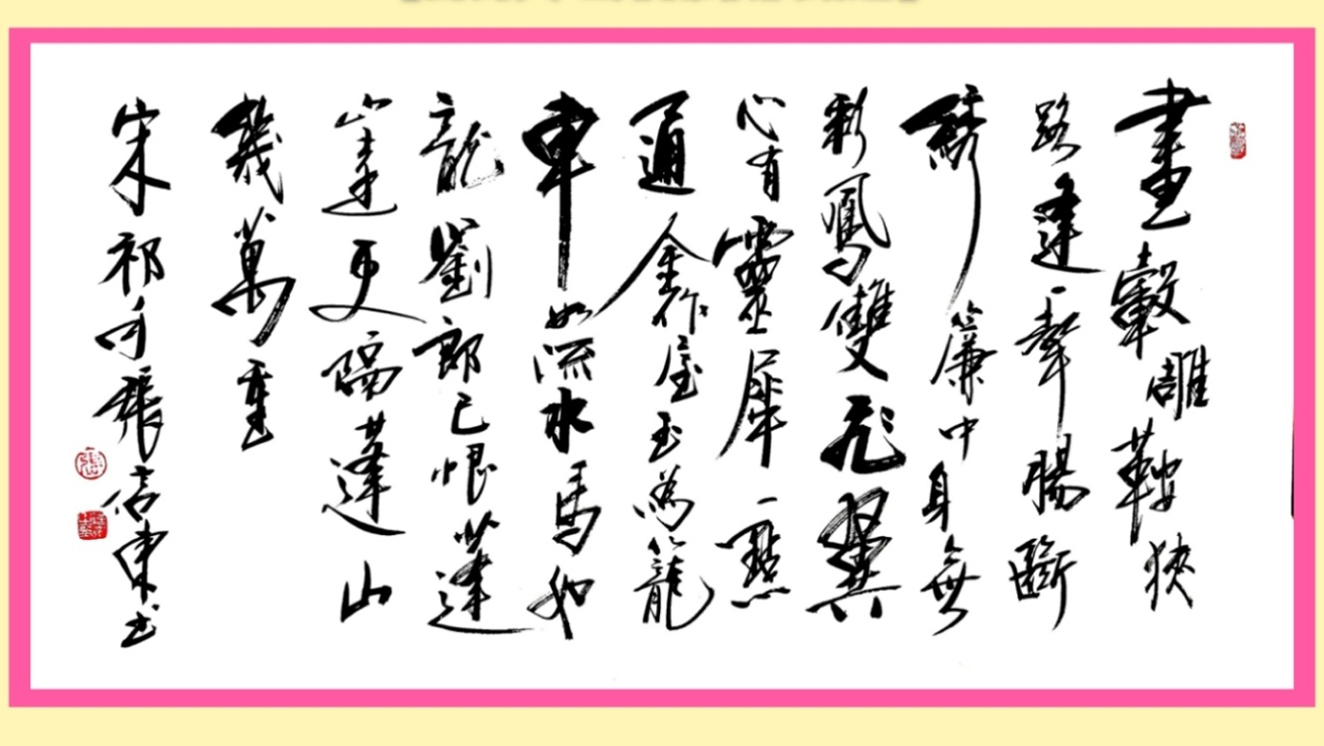 畫轂雕鞍狹
路逢一聲腸斷
繡簾中身無
彩鳳雙飛翼
心有靈犀一點
通金作屋玉為籠
車如流水馬如
龍劉郎已恨蓬
山遠更隔蓬山
幾萬重
宋祁句張信東书